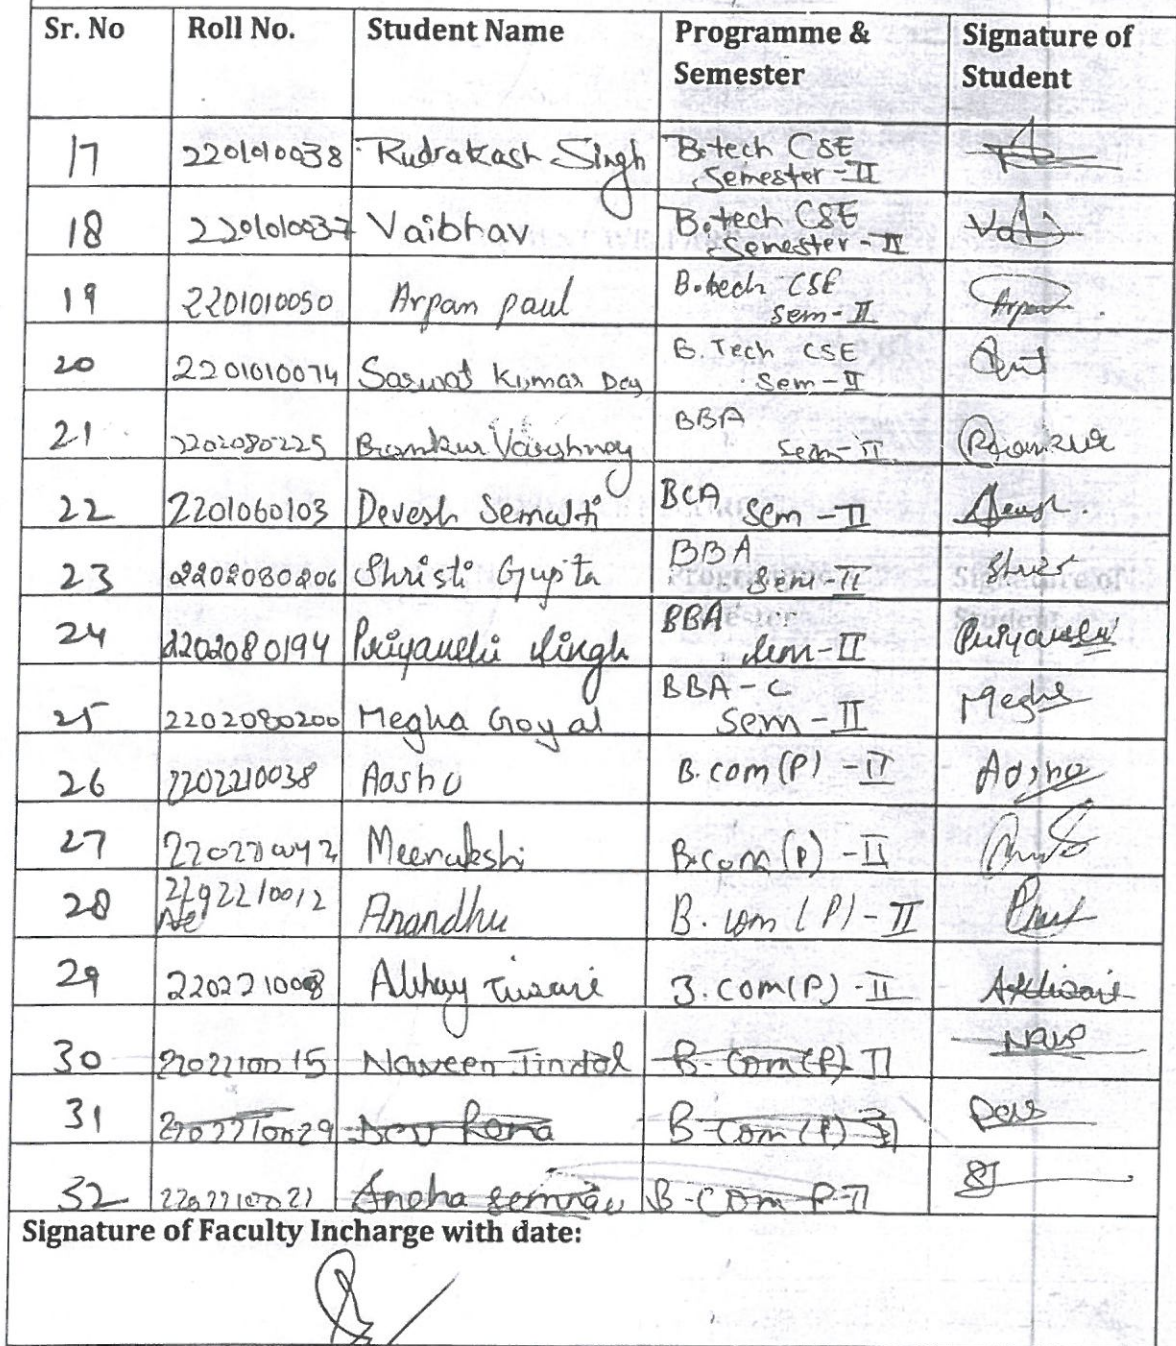 Sr. No Roll No. Student Name Programme & Semester Signature of Student
17 2201010038 Rudrakash Singh B.tech CSE Semester-II
18 2201010037 Vaibhav B.tech CSE Semester-II
19 2201010050 Arpan paul B.tech CSE Sem-II Arpan
20 2201010074 Saswat Kumar Dey B.Tech CSE Sem-II
21 2202080225 Vaishnav BBA Sem-II
22 2201060103 Devesh Semalti BCA Sem-II
23 2202080206 Shristi Gupta BBA Sem-II
24 2202080194 Priyanshi Singh BBA Sem-II Priyanshi
25 2202080200 Megha Goyal BBA-C Sem-II Megha
26 2202210038 Aoshu B.com(P)-II
27 Meenakshi B.com(P)-II
28 Anandhu B.com(P)-II
29 220221008 Abhay Tiwari B.com(P)-II
30 2202210015 Naveen Jindal B-Com(P) II
31 2202210029 B-Com(P)
32 B-Com P-II
Signature of Faculty Incharge with date: